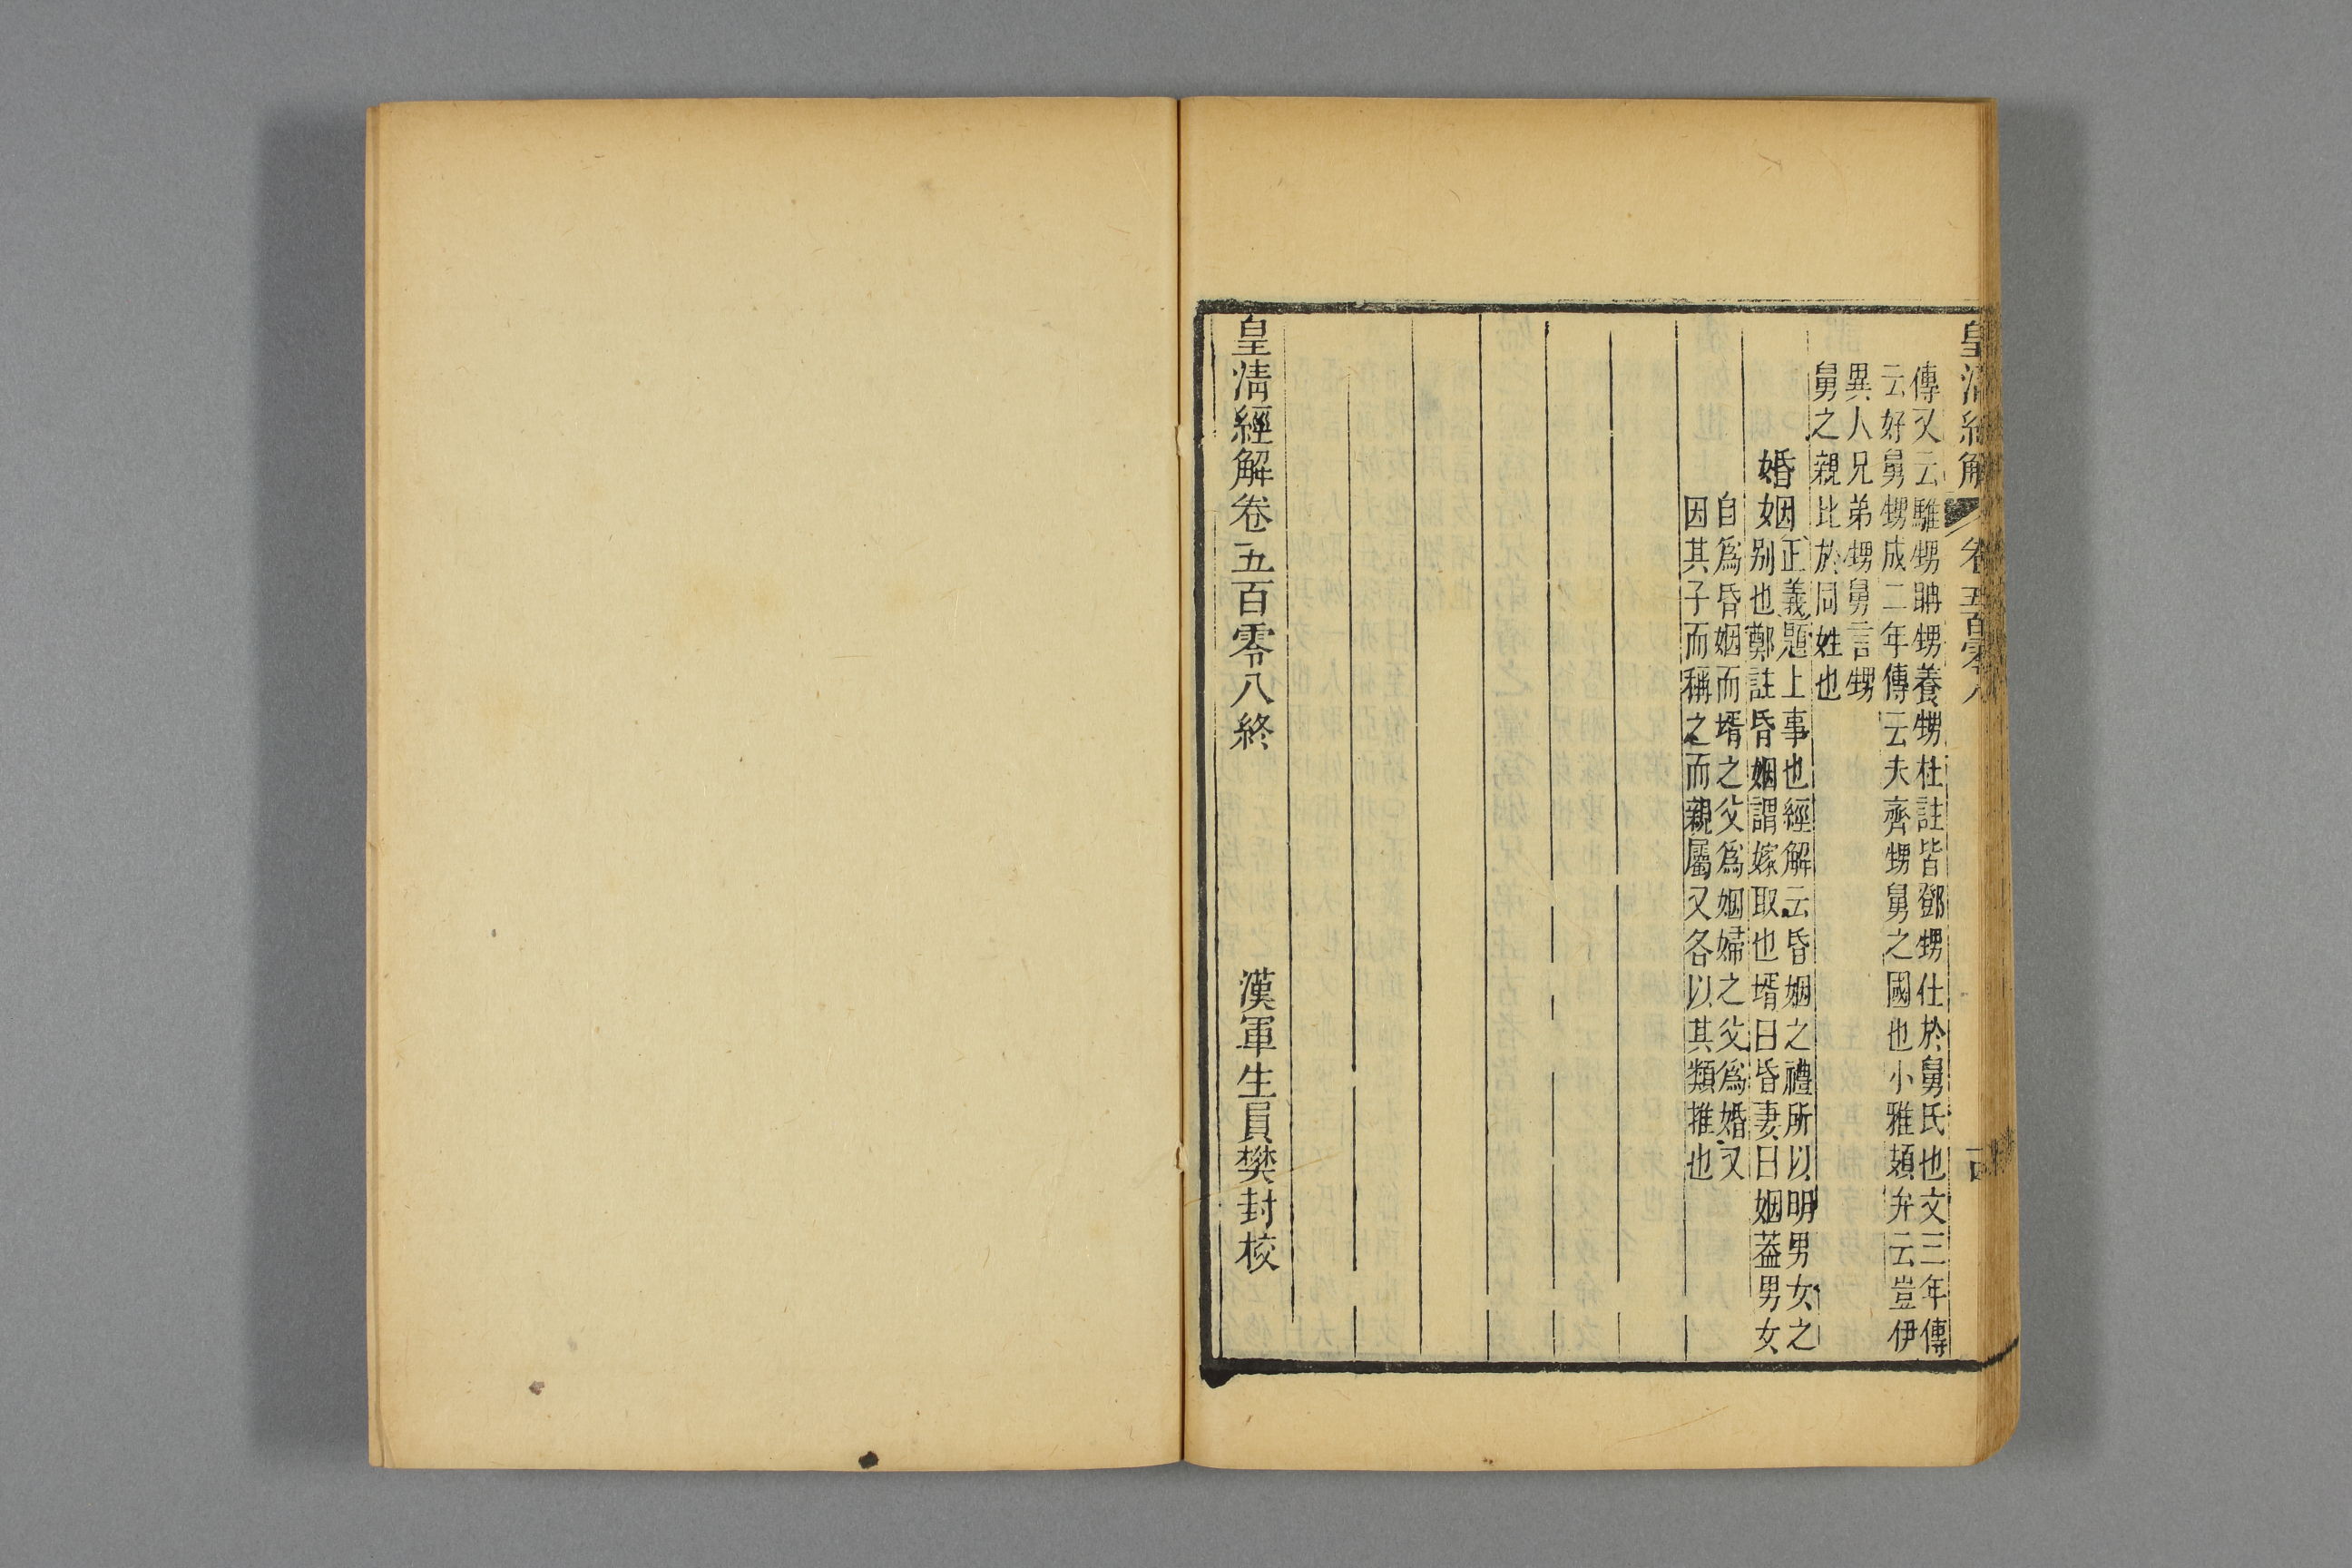 皇清經解 卷五百零八
傳又云騅甥聃甥養甥杜註皆鄧甥仕於舅氏也文三年傳
云好舅甥成二年傳云夫齊甥舅之國也小雅頍弁云豈伊
異人兄弟甥舅言甥
舅之親比於同姓也
婚姻正義題上事也經解云昏姻之禮所以明男女之
別也鄭註昏姻謂嫁取也壻曰昏妻曰姻葢男女
自爲昏姻而壻之父爲姻婦之父爲婚又
因其子而稱之而親屬又各以其類推也
皇清經解卷五百零八終
漢軍生員樊封校